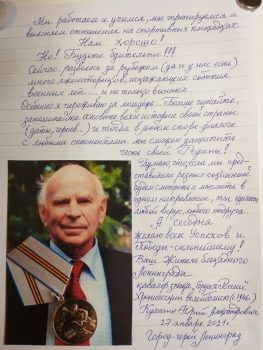 Мы работаем и учимся, мы тренируемся и
выясняем отношения на спортивных площадках
Нам хорошо!
Но! Будьте бдительны!!!
Сейчас развелось за рубежом (да и у нас есть)
много лжеисториков, искажающих события
военных лет... и не только военных.
Особенно я переживаю за молодёжь... больше читайте,
запоминайте основные вехи истории своей страны
(даты, героев...) и тогда в любом споре диалоге
с любыми оппонентами мы сможем защитить
честь своей Родины!
Думаю, что все мы
разных поколений
будем смотреть и мыслить в
одном направлении,
любой вирус, любого недруга
А сегодня
желаю всем Успехов и
Победы - сильнейшему!
Ваш Житель блокадного
Ленинграда
Юрий
27 января 2021 г.
Город-герой Ленинград